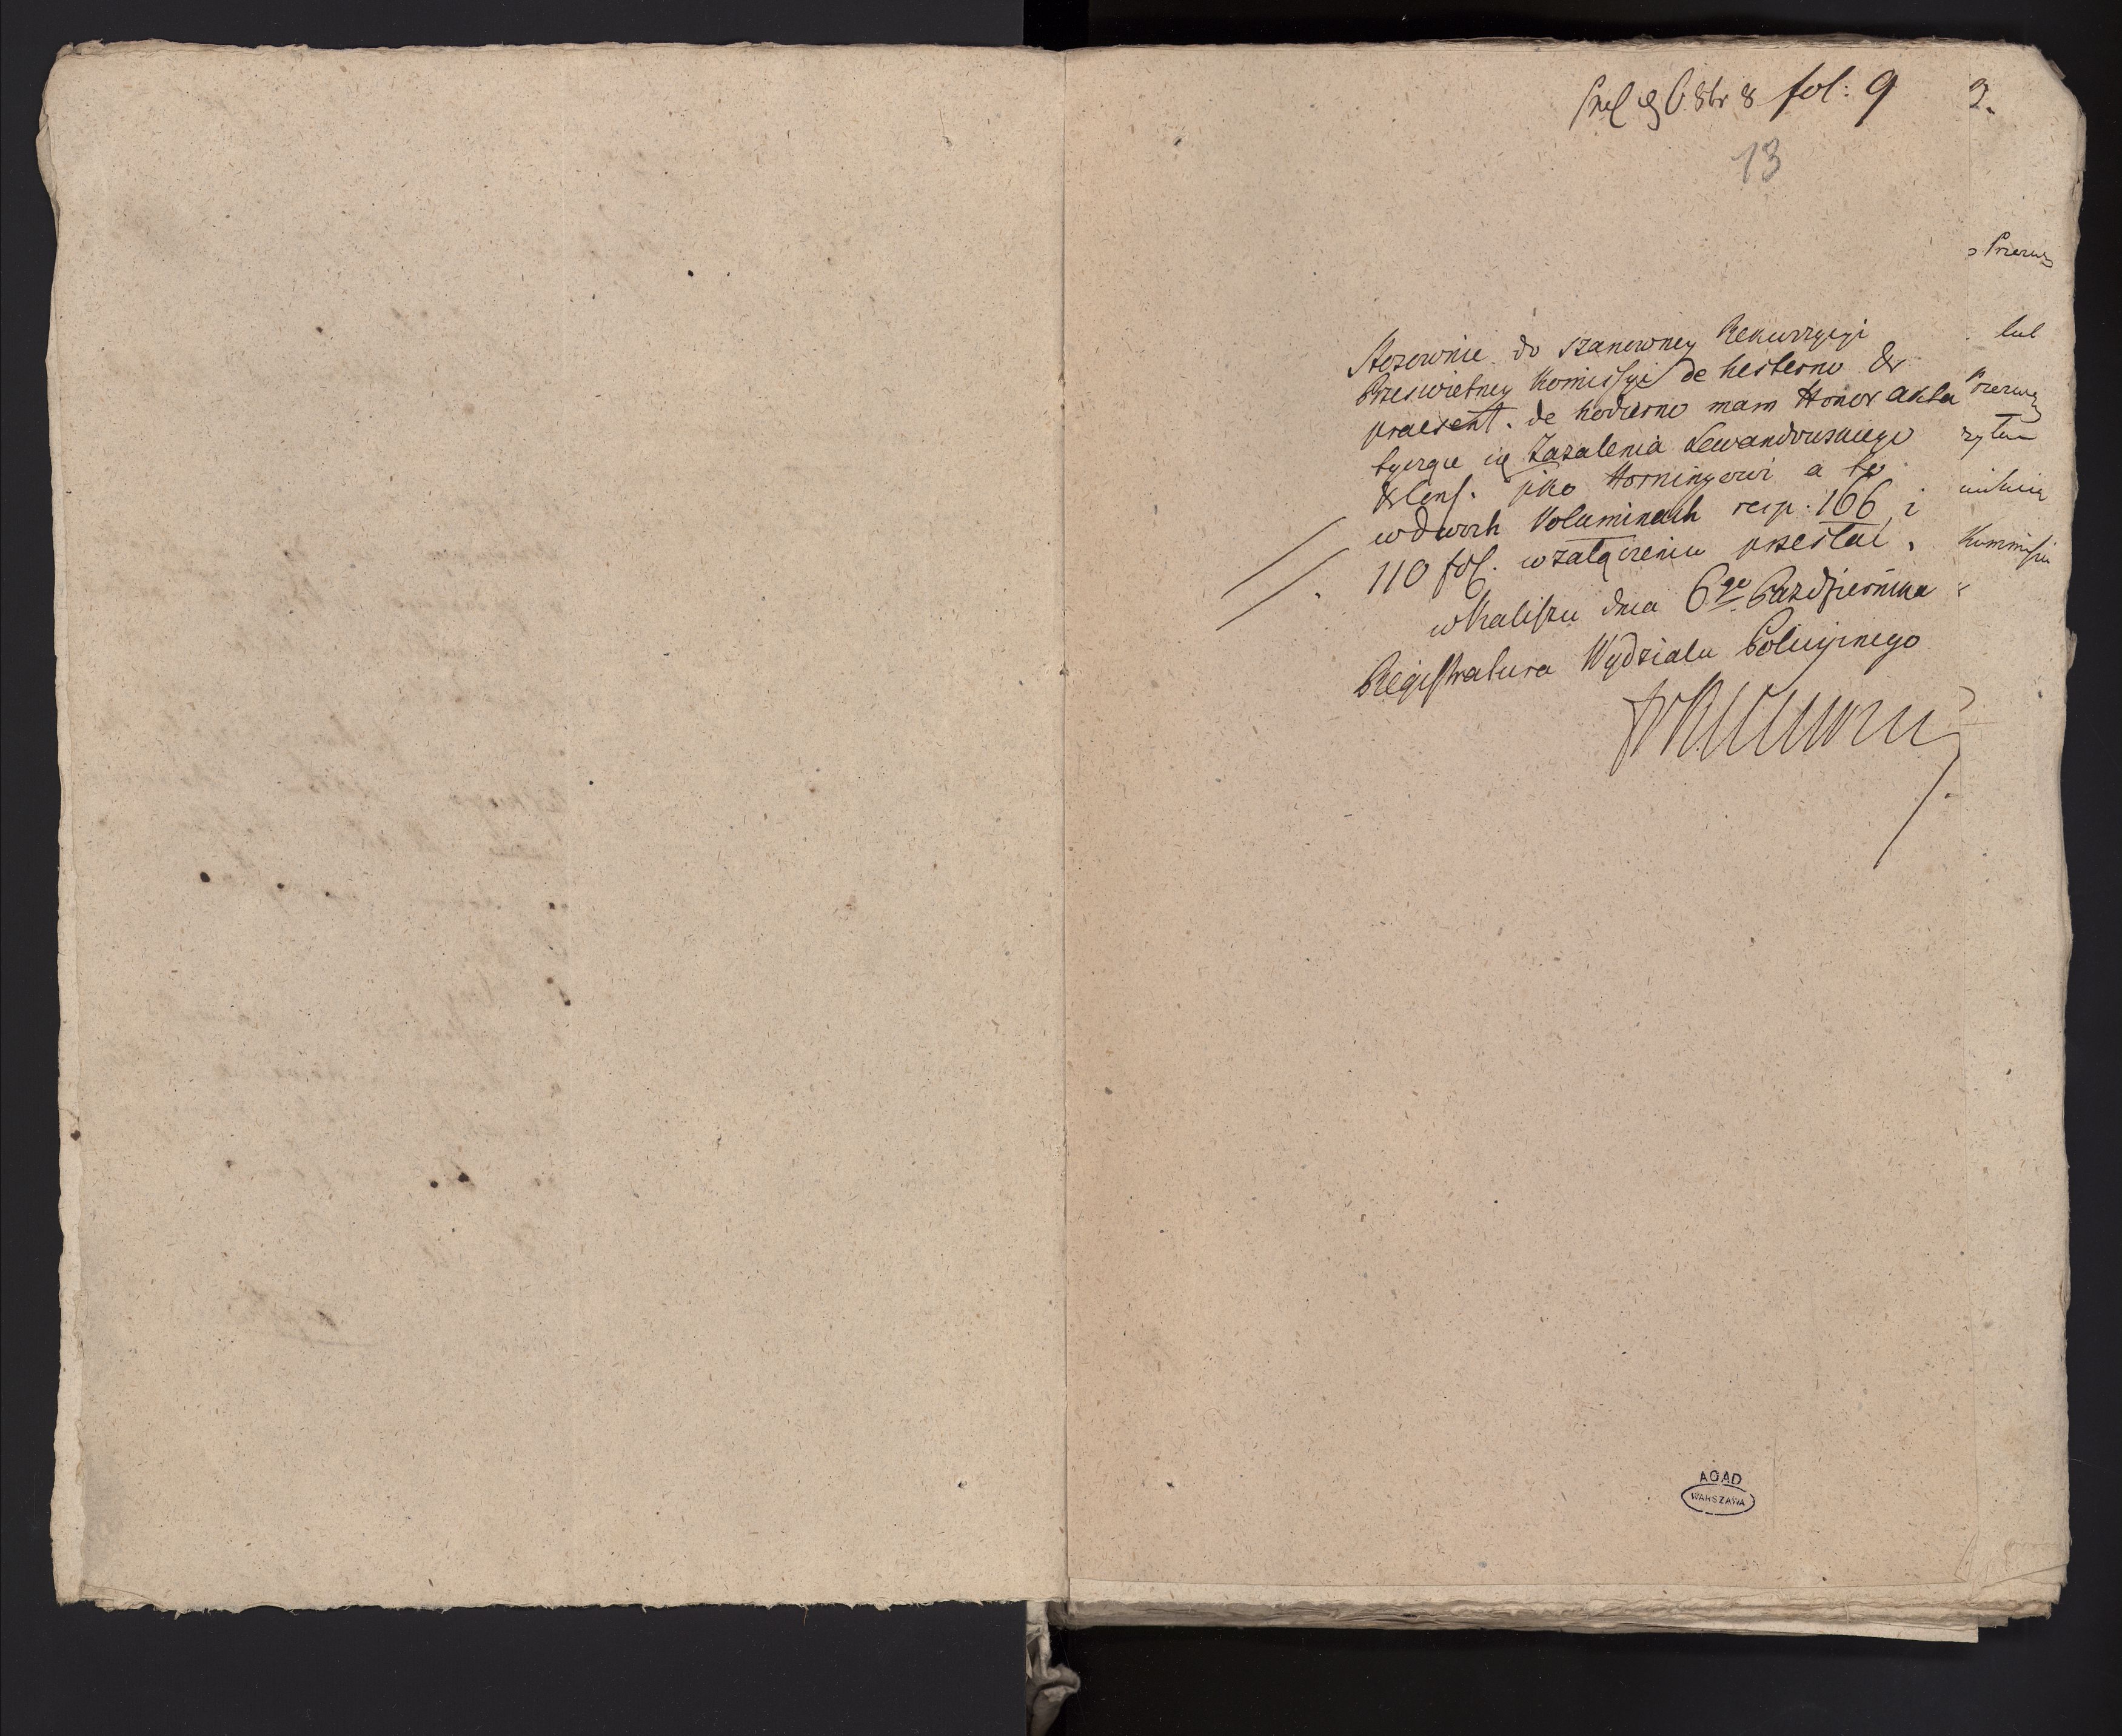 fol: 9
13
Stosownie do szanowney Rekwizycyi
Prześwietney Komissyi de hesterno &
praesent. de hodierno mam Honor akta
tyczące się Zażalenia Lewandowskiego
& Cons. pko Horningowi a to
w dwoch Voluminach resp. 166 i
110 fol. w załączeniu przesłać.
w Kaliszu dnia 6go Października
Registratura Wydziału Policyinego
2.
lub
AGAD
WARSZAWA